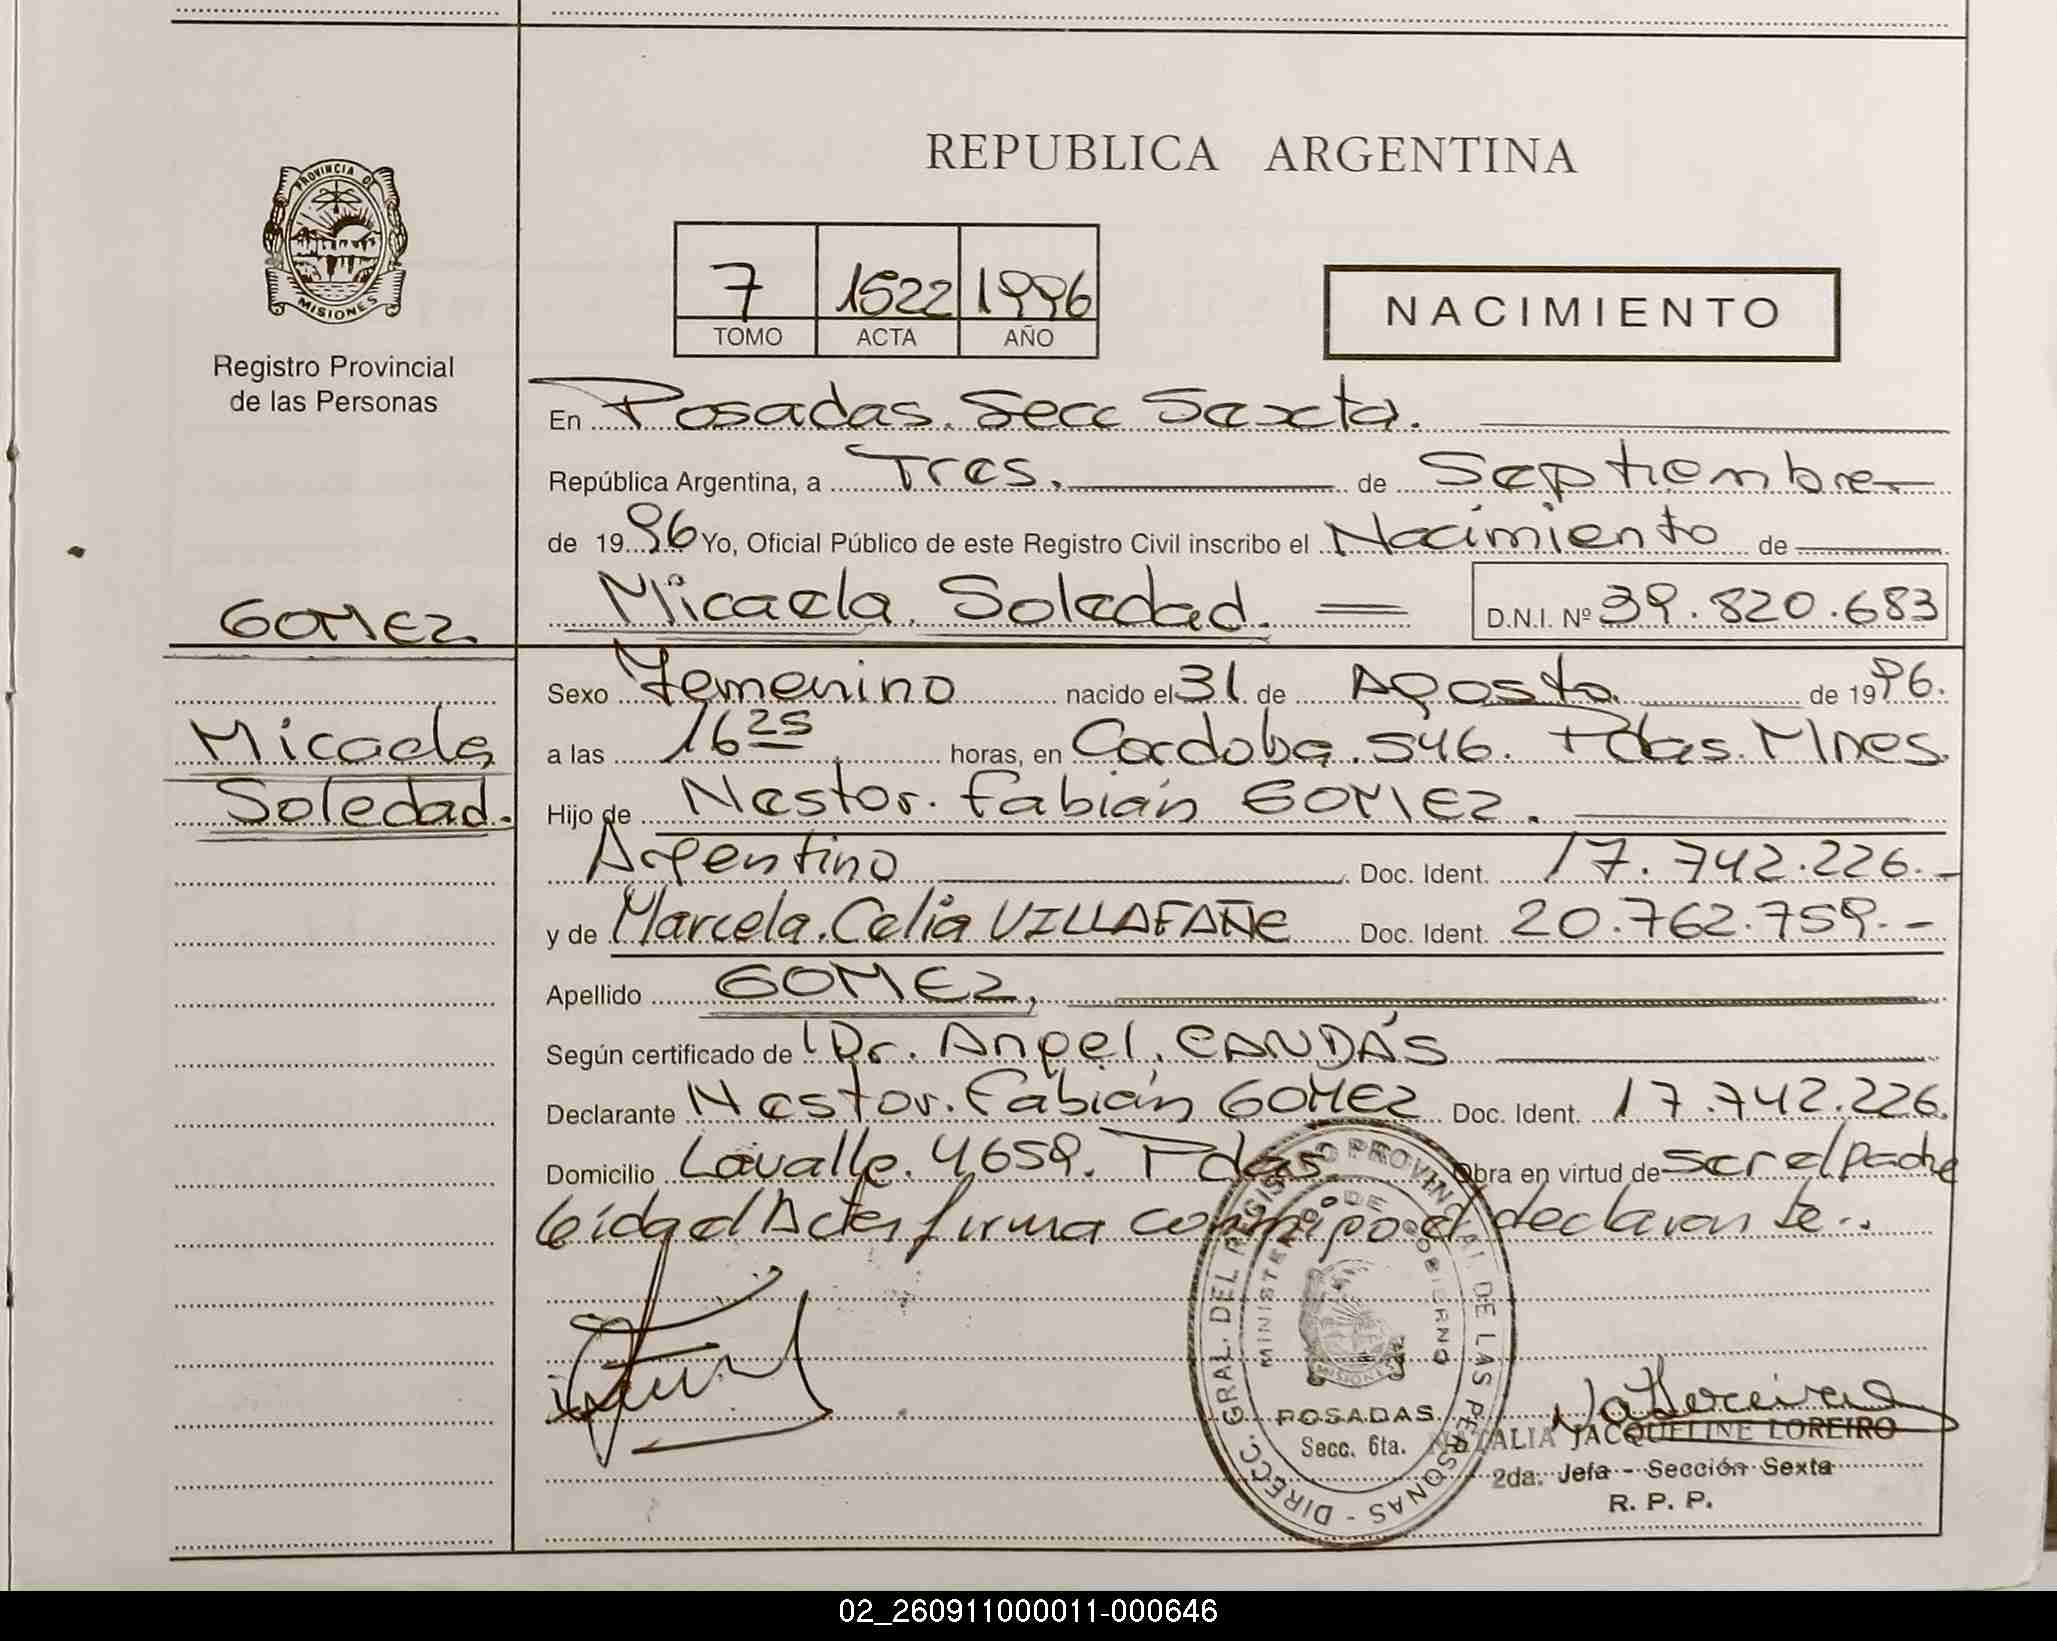 REPUBLICA ARGENTINA
PROVINCIA DE
MISIONES
Registro Provincial
de las Personas
7 1522 1996
TOMO ACTA AÑO
NACIMIENTO
En Posadas. Secc Sexta.
República Argentina, a Tres. de Septiembre
de 1996 Yo, Oficial Público de este Registro Civil inscribo el Nacimiento de
Micaela Soledad. D.N.I. Nº 39.820.683
GOMEZ
Micaela
Soledad.
Sexo Femenino nacido el 31 de Agosto. de 1996.
a las 16 25 horas, en Cordoba. 546. Pdas. Mnes.
Hijo de Nestor. Fabián GOMEZ.
Argentino Doc. Ident. 17.742.226.-
y de Marcela. Celia VILLAFAÑE Doc. Ident. 20.762.759.-
Apellido GOMEZ,
Según certificado de Dr. Angel. CANDÁS
Declarante Nestor. Fabián GOMEZ Doc. Ident. 17.742.226.
Domicilio Lavalle. 4659. Pdas. Obra en virtud de ser el padre
leida el Acta firma conmigo el declarante..
DIRECC. GRAL. DEL REGISTRO PROVINCIAL DE LAS PERSONAS -
MINISTERIO DE GOBIERNO
MISIONES
POSADAS
Secc. 6ta.
NATALIA JACQUELINE LOREIRO
2da. Jefa - Sección Sexta
R. P. P.
02_260911000011-000646